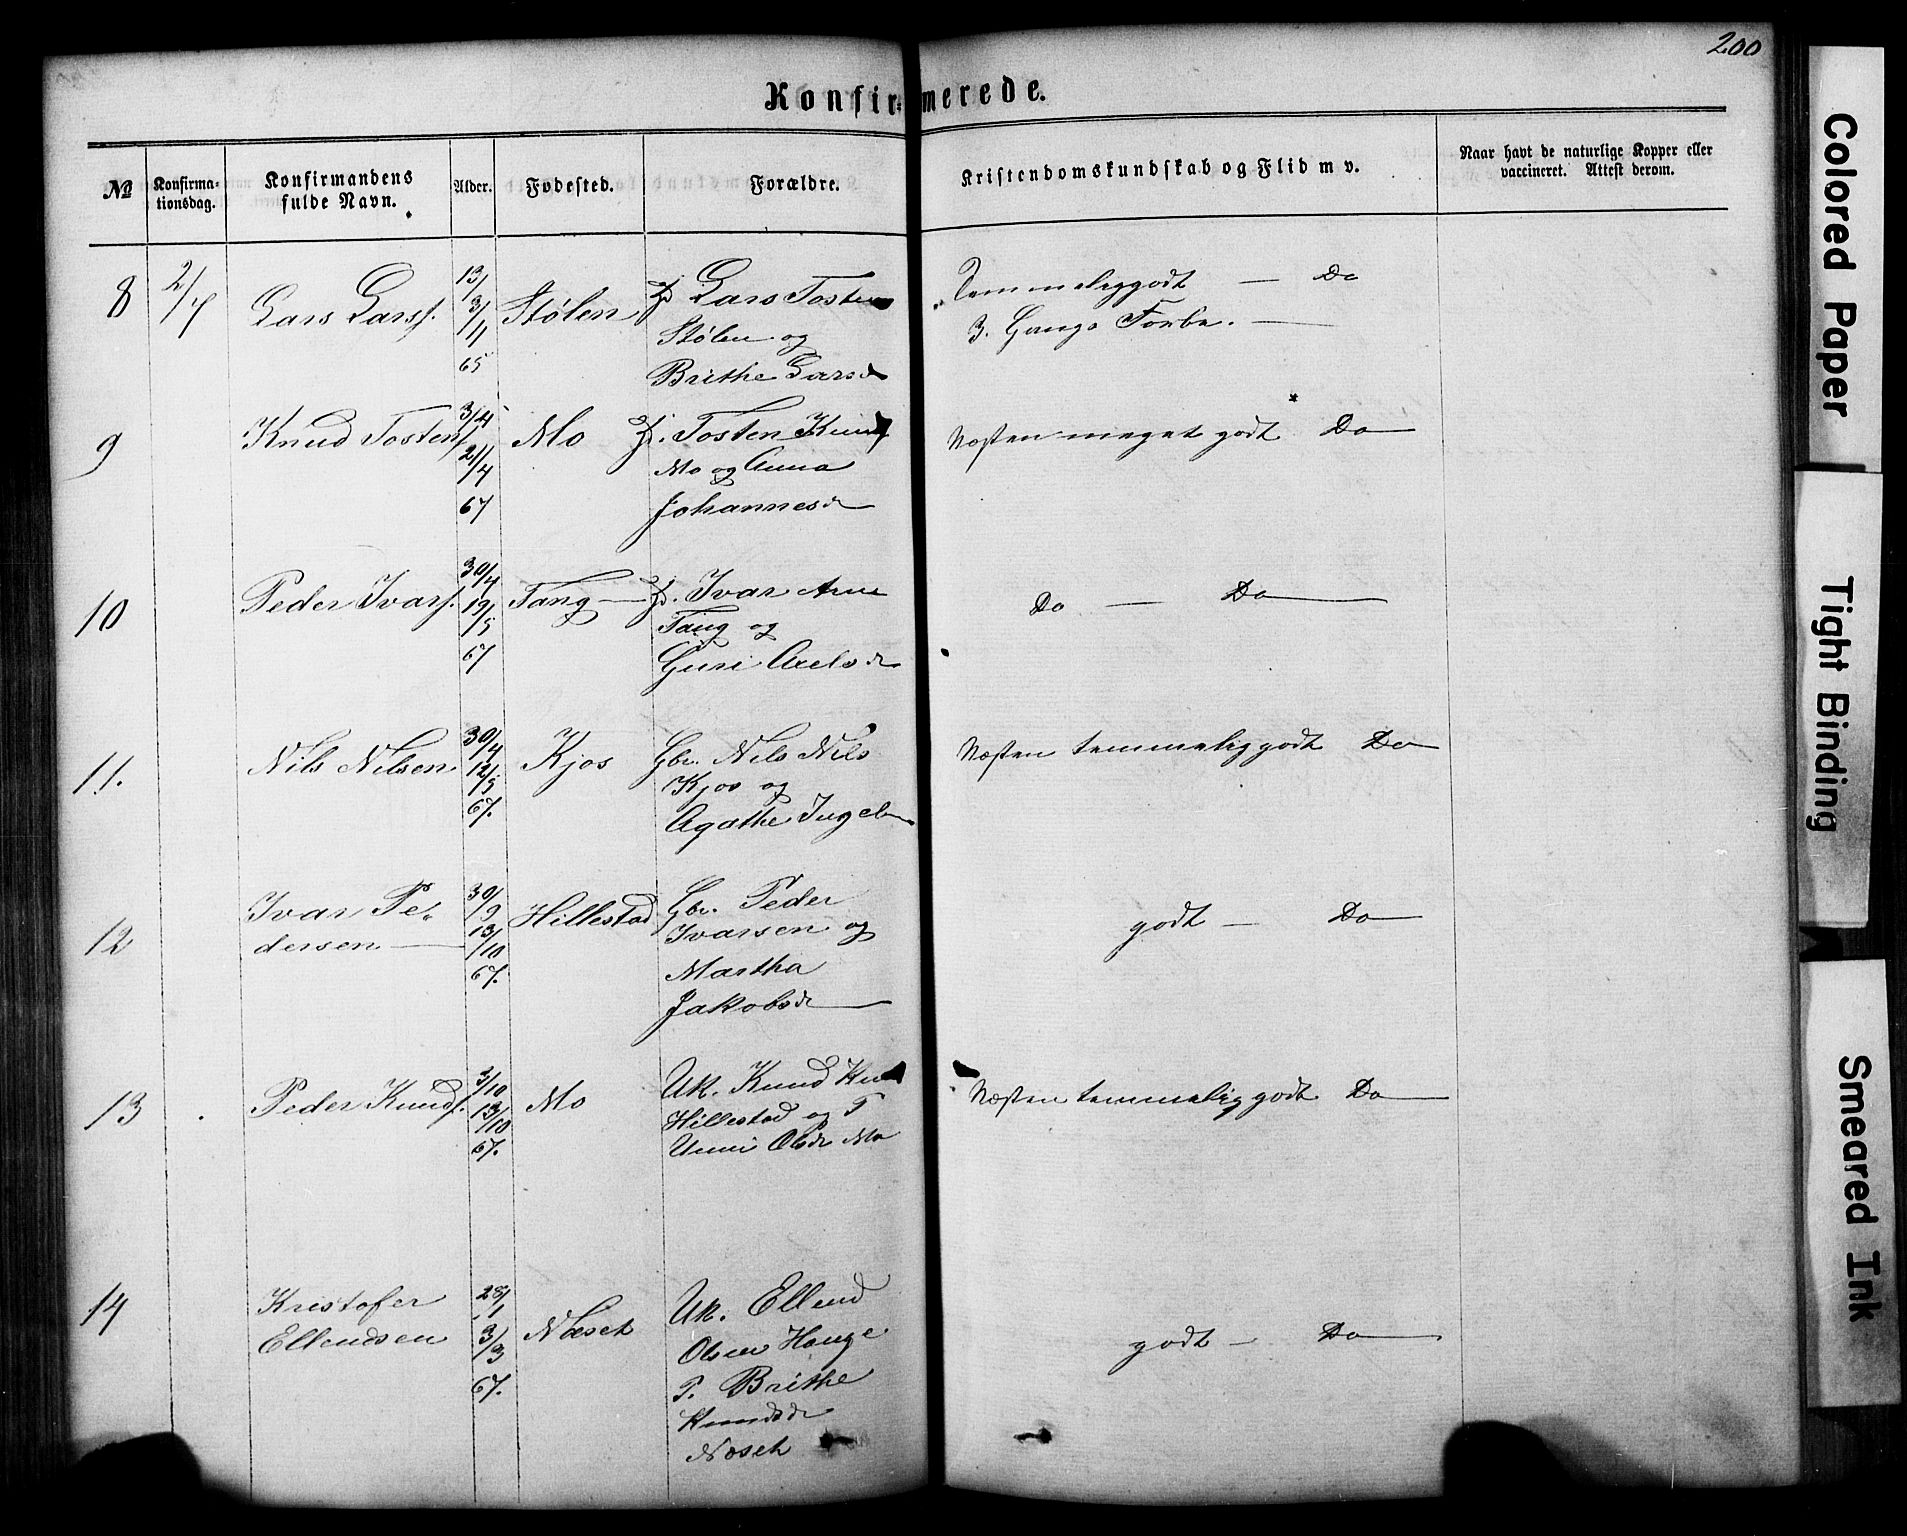 200
Konfirmerede.
№ Konfirmationsdag. Konfirmandens fulde Navn. Alder. Fødested. Forældre. Kristendomskundskab og Flid m v. Naar havt de naturlige Kopper eller vaccineret. Attest derom.
8 2/7 Lars Larss. 13/3 /11 65 Stølen Lars Tosten
Stølen og
Brithe Larsd
Temmelig godt — Do
3. Gange Forbe. —
9 Knud Tostens 3/4 21/4 67 Mo Tosten Knud
Mo og Anna
Johannesd
Næsten meget godt Do
10 Peder Ivars. 30/4 19/5 67 Tang Ivar Arne
Tang og
Guri Axelsd
Do — Do
11. Nils Nilsen 30/4 12/5 67. Kjos Gbr. Nils Nils
Kjos og
Agathe Ingeb
Næsten temmelig godt Do
12 Ivar Pe-
dersen 30/9 13/10 67. Hillestad Gbr. Peder
Ivarsen og
Martha
Jakobsd
godt — Do
13 Peder Knuds. 3/10 13/10 67. Mo Uk. Knud Knu
Hillestad og P
Unni Olsdr Mo
Næsten temmelig godt Do
14 Kristofer
Ellendsen 28/1 3/3 67. Næset Uk. Ellend
Olsen Hauge
P. Brithe
Knudsdr
Næset
godt — Do
Colored Paper
Tight Binding
Smeared Ink